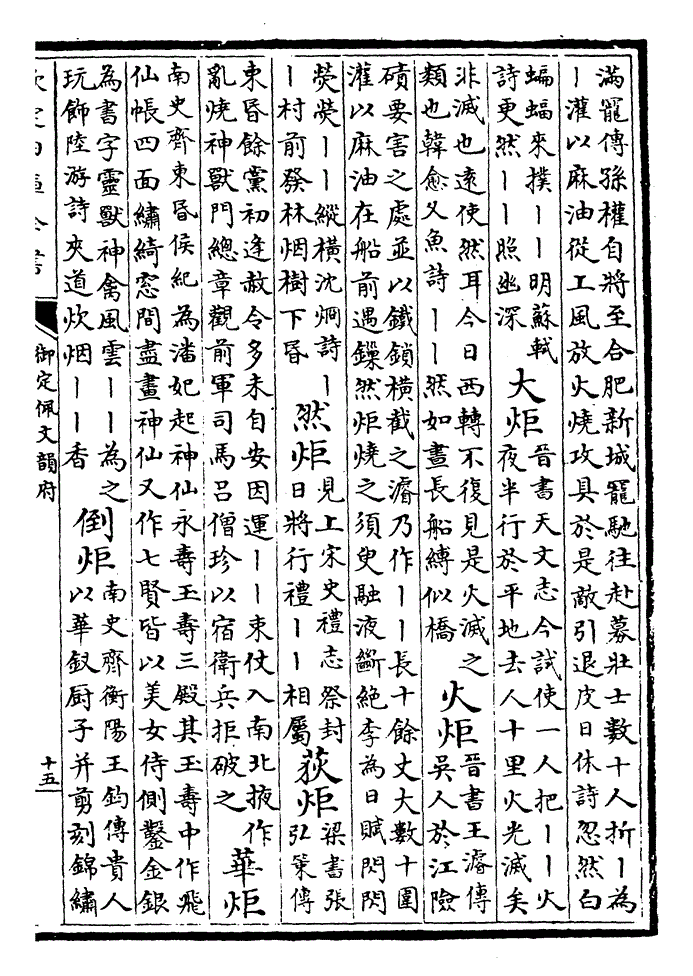 滿寵傳孫權自將至合肥新城寵馳往赴募壯士數十人折丨為
丨灌以麻油從上風放火燒攻具於是敵引退皮日休詩忽然白
蝙蝠來撲丨丨明蘇軾
詩更然丨丨照幽深
大炬
晉書天文志今試使一人把丨丨火
夜半行於平地去人十里火光滅矣
非滅也遠使然耳今日西轉不復見是火滅之
類也韓愈叉魚詩丨丨然如晝長船縛似橋
火炬
晉書王濬傳
吳人於江險
磧要害之處並以鐵鎖橫截之濬乃作丨丨長十餘丈大數十圍
灌以麻油在船前遇鏁然炬燒之須臾融液斷絕李為日賦閃閃
熒熒丨丨縱橫沈烱詩丨
丨村前發林烟樹下昏
然炬
見上宋史禮志祭封
日將行禮丨丨相屬
荻炬
梁書張
弘策傳
東昏餘黨初逢赦令多未自安因運丨丨束仗入南北掖作
亂燒神獸門總章觀前軍司馬呂僧珍以宿衛兵拒破之
華炬
南史齊東昏侯紀為潘妃起神仙永壽玉壽三殿其玉壽中作飛
仙帳四面繡綺窓間盡畫神仙又作七賢皆以美女侍側鑿金銀
為書字靈獸神禽風雲丨丨為之
玩飾陸游詩夾道炊烟丨丨香
倒炬
南史齊衡陽王鈞傳貴人
以華釵厨子并剪刻錦繡
欽定四庫全書
御定佩文韻府
十五